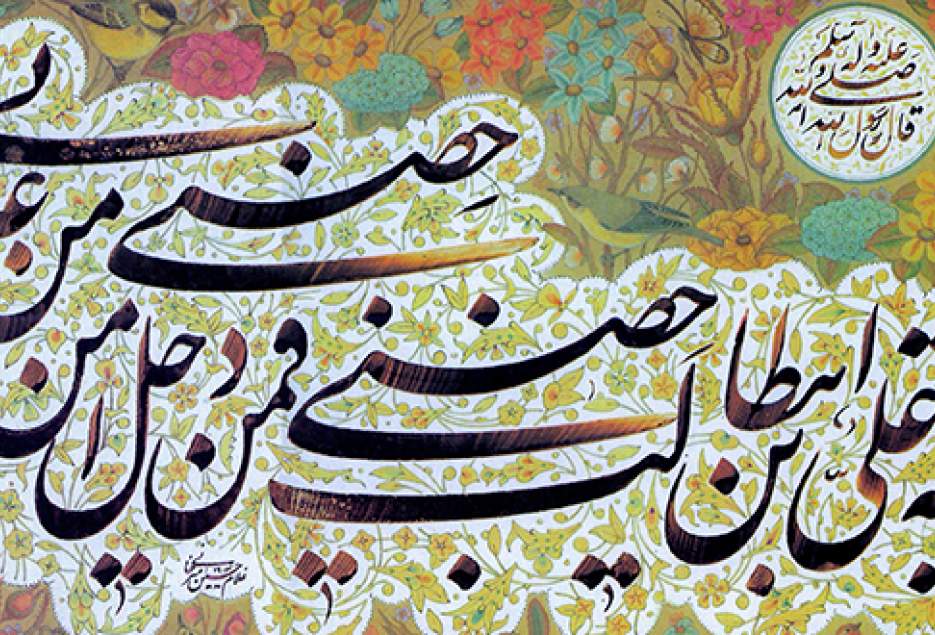 قال رسول الله صلی الله علیه و آله و سلم
علی بن ابیطالب حصنی فمن دخل حصنی امن من
غلامحسین امیرخانی